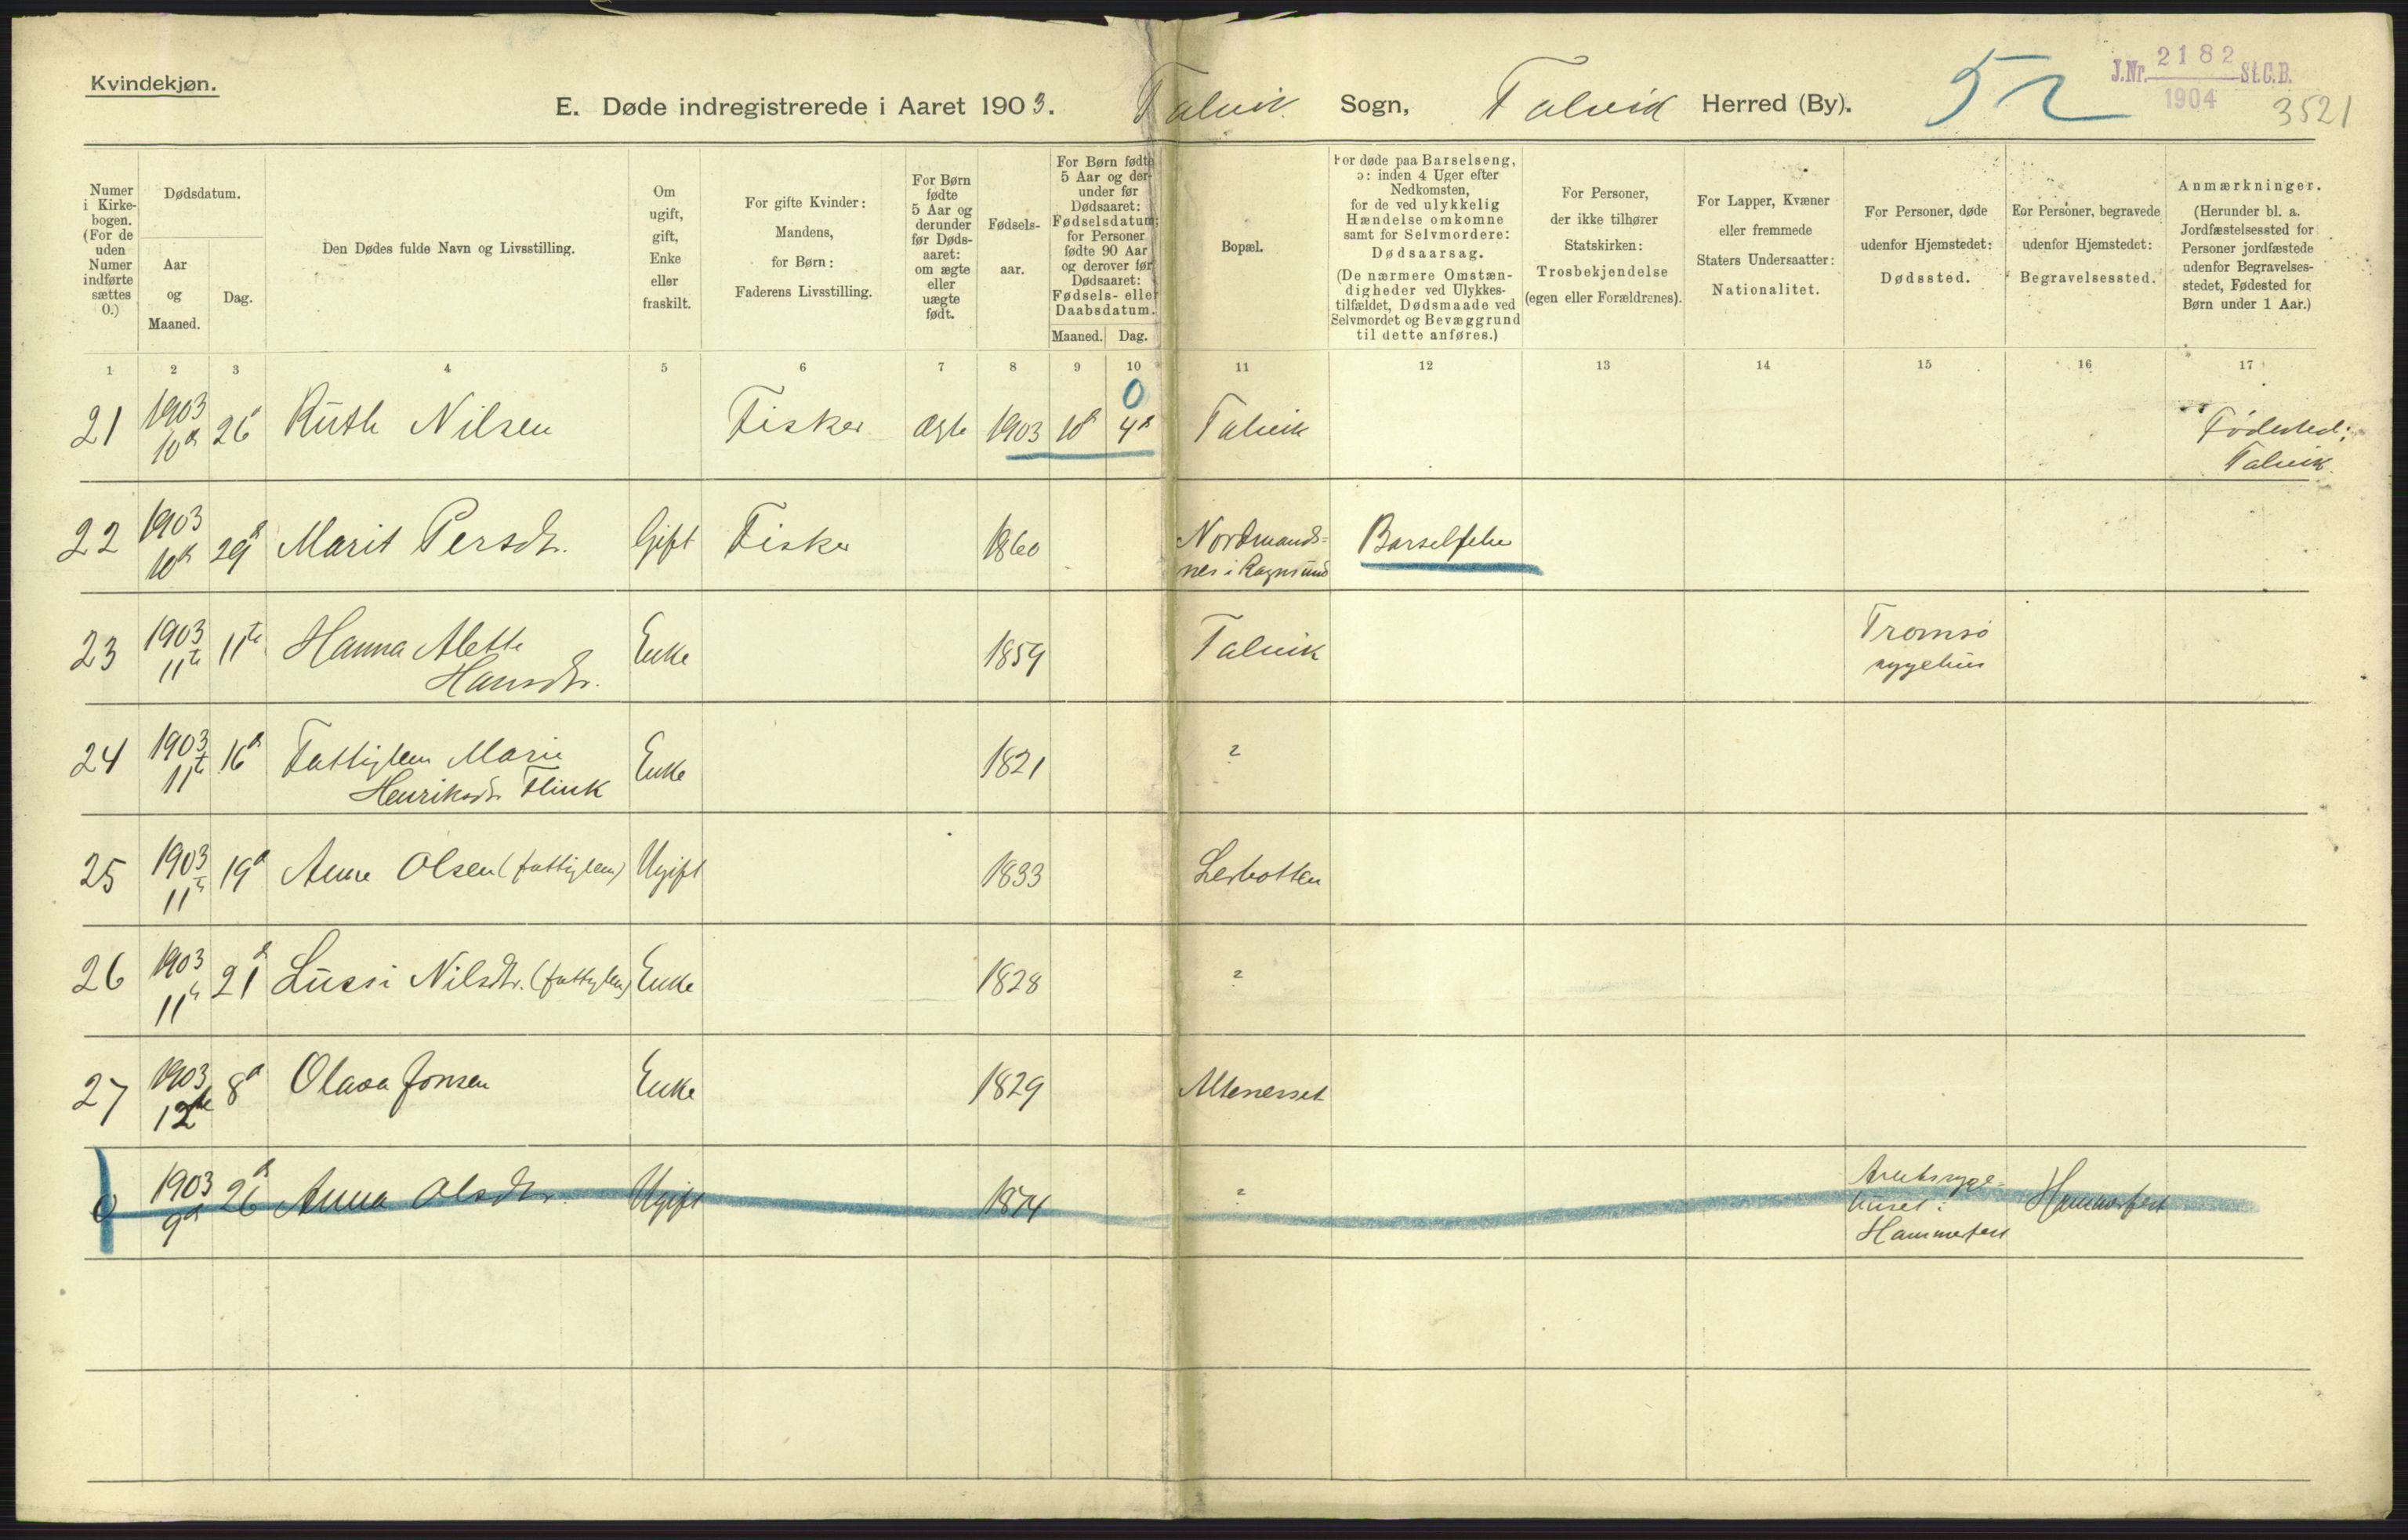 Kvindekjøn.
E. Døde indregistrerede i Aaret 1903. Talvik Sogn, Talvik Herred (By). 52
J.Nr. 2182 St.C.B.
1904
3521
Numer i Kirkebogen. (For de uden Numer indførte sættes 0.)
Dødsdatum.
Aar og Maaned.
Dag.
Den Dødes fulde Navn og Livsstilling.
Om ugift, gift, Enke eller fraskilt.
For gifte Kvinder: Mandens, for Børn: Faderens Livsstilling.
For Børn fødte 5 Aar og derunder før Dødsaaret: om ægte eller uægte født.
Fødselsaar.
For Børn fødte 5 Aar og derunder før Dødsaaret: Fødselsdatum; for Personer fødte 90 Aar og derover før Dødsaaret: Fødsels- eller Daabsdatum.
Maaned. Dag.
Bopæl.
For døde paa Barselseng, ɔ: inden 4 Uger efter Nedkomsten, for de ved ulykkelig Hændelse omkomne samt for Selvmordere: Dødsaarsag. (De nærmere Omstændigheder ved Ulykkestilfældet, Dødsmaade ved Selvmordet og Bevæggrund til dette anføres.)
For Personer, der ikke tilhører Statskirken: Trosbekjendelse (egen eller Forældrenes).
For Lapper, Kvæner eller fremmede Staters Undersaatter: Nationalitet.
For Personer, døde udenfor Hjemstedet: Dødssted.
For Personer, begravede udenfor Hjemstedet: Begravelsessted.
Anmærkninger. (Herunder bl. a. Jordfæstelsessted for Personer jordfæstede udenfor Begravelsesstedet, Fødested for Børn under 1 Aar.)
1 2 3 4 5 6 7 8 9 10 11 12 13 14 15 16 17
0
21 1903 10d 26d Ruth Nilsen Fisker ægte 1903 10d 4d Talvik Fødested: Talvik
22 1903 10d 29d Marit Persdtr. Gift Fisker 1860 Nordmandsnes i Rognsund Barselfeber
23 1903 11te 11te Hanna Alette Hansdtr. Enke 1859 Talvik Tromsø sygehus
24 1903 11te 16d Fattiglem Marie Henriksdtr Flink Enke 1821 ?
25 1903 11te 19d Anne Olsen (fattiglem) Ugift 1833 Lerbotten
26 1903 11te 21d Lussi Nilsdtr. (fattiglem) Enke 1828 ?
27 1903 12te 8d Olava Jonsen Enke 1829 Altenesset
0 1903 9d 26d Anna Olsdtr Ugift 1874 ? Amtssygehuset i Hammerfest Hammerfest